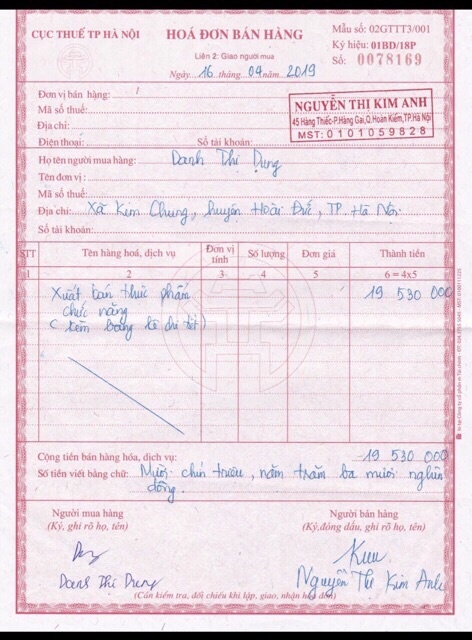 CỤC THUẾ TP HÀ NỘI
HOÁ ĐƠN BÁN HÀNG
Liên 2: Giao người mua
Ngày 16 tháng 04 năm 2019
Mẫu số: 02GTTT3/001
Ký hiệu: 01BD/18P
Số: 0078169
Đơn vị bán hàng:
Mã số thuế:
Địa chỉ:
Điện thoại: Số tài khoản:
NGUYỄN THỊ KIM ANH
45 Hàng Thiếc-P.Hàng Gai,Q.Hoàn Kiếm,TP.Hà Nội
MST: 0101059828
Họ tên người mua hàng: Danh Thị Dụng
Tên đơn vị:
Mã số thuế:
Địa chỉ: Xã Kim Chung, huyện Hoài Đức, TP. Hà Nội.
Số tài khoản:
STT Tên hàng hoá, dịch vụ Đơn vị tính Số lượng Đơn giá Thành tiền
1 2 3 4 5 6 = 4x5
Xuất bán thực phẩm 19 530 000
chức năng
( kèm bảng kê chi tiết )
Cộng tiền bán hàng hóa, dịch vụ: 19 530 000
Số tiền viết bằng chữ: Mười chín triệu, năm trăm ba mươi nghìn
đồng.
Người mua hàng
(Ký, ghi rõ họ, tên)
Người bán hàng
(Ký,đóng dấu, ghi rõ họ, tên)
Nguyễn Thị Kim Anh
(Cần kiểm tra, đối chiếu khi lập, giao, nhận hóa đơn)